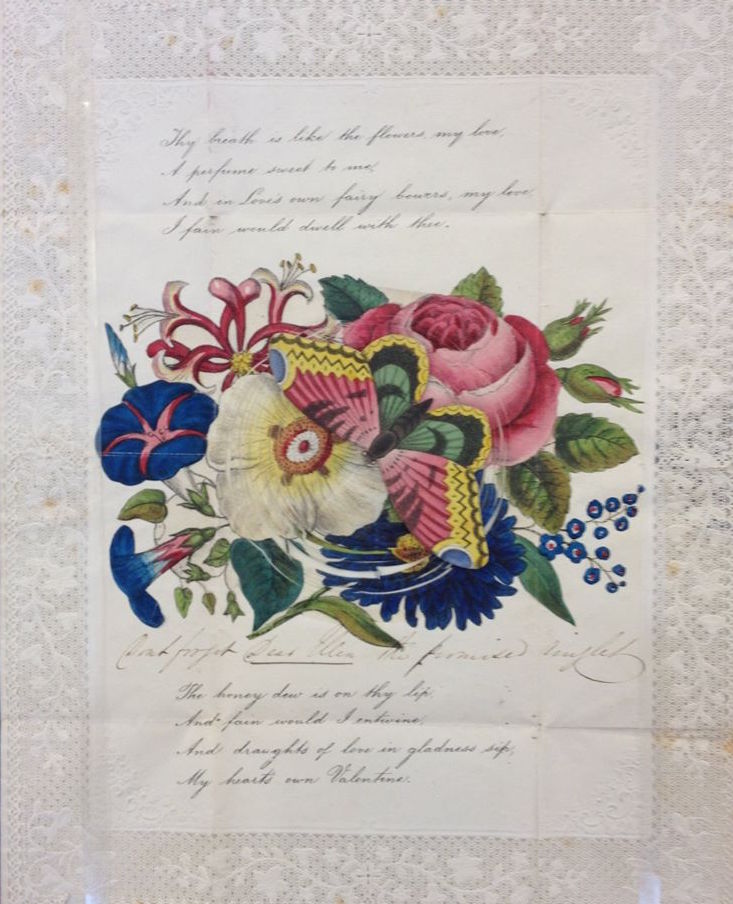 Thy breath is like the flowers, my love,
A perfume sweet to me,
And in Loves own fairy bowers, my love
I fain would dwell with thee.
Dont forget Dear Ellen the promised ringlet
The honey dew is on thy lip,
And fain would I entwine,
And draughts of love in gladness sip,
My hearts own Valentine.